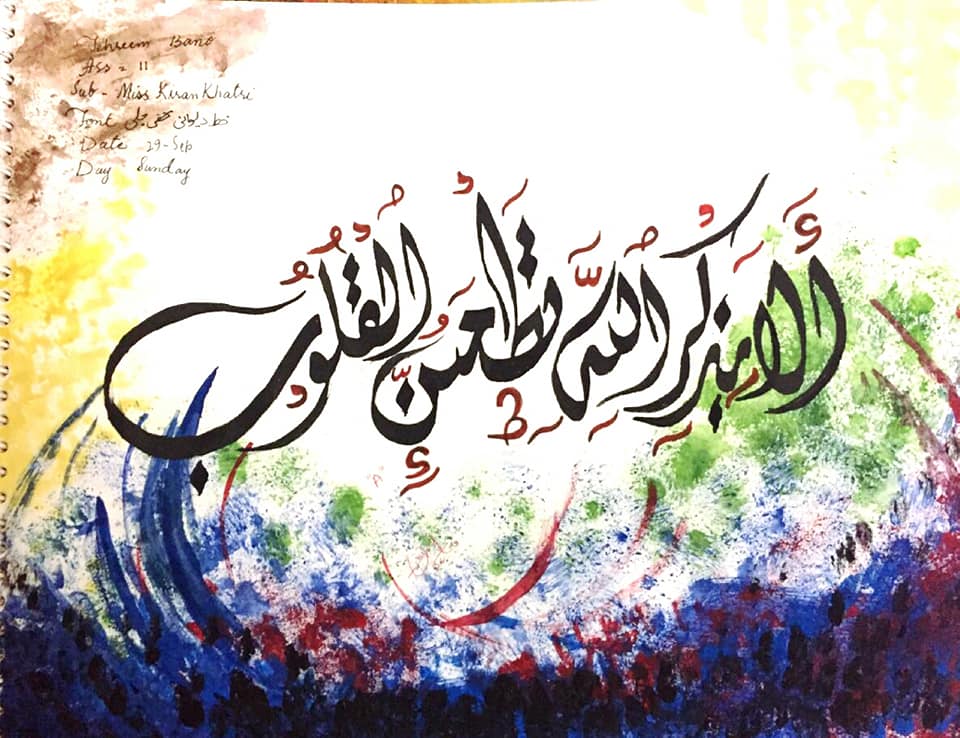 Tehreem Bano
Ass = 11
Sub - Miss Kiran Khatri
Font خط دیوانی جلی
Date 29-Sep
Day Sunday
أَلَا بِذِكْرِ اللَّهِ تَطْمَئِنُّ الْقُلُوبُ